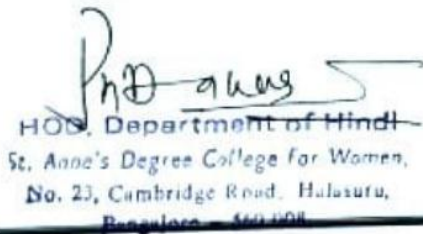 HOD, Department of Hindi
St. Anne's Degree College for Women,
No. 23, Cambridge Road, Halasuru,
Bangalore - 560 008.